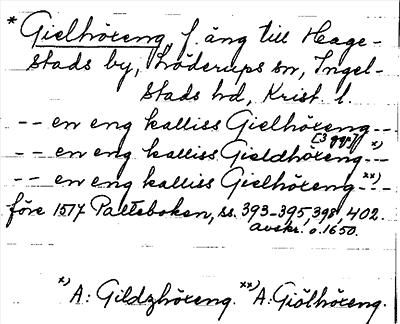 * Gielhöreng, f. äng till Hage-
stads by, Löderups sn, Ingel-
stads hd, Krist. l.
-- en eng kalliss Gielhöreng ---
[3 ggr] x)
-- en eng kalliss Gieldhöreng ---
-- en eng kalliss Gielhöreng -- xx)
före 1577 Palteboken, ss. 393-395, 398, 402.
avskr. o. 1650.
x) A: Gildzhöreng. xx) A: Giölhöreng.